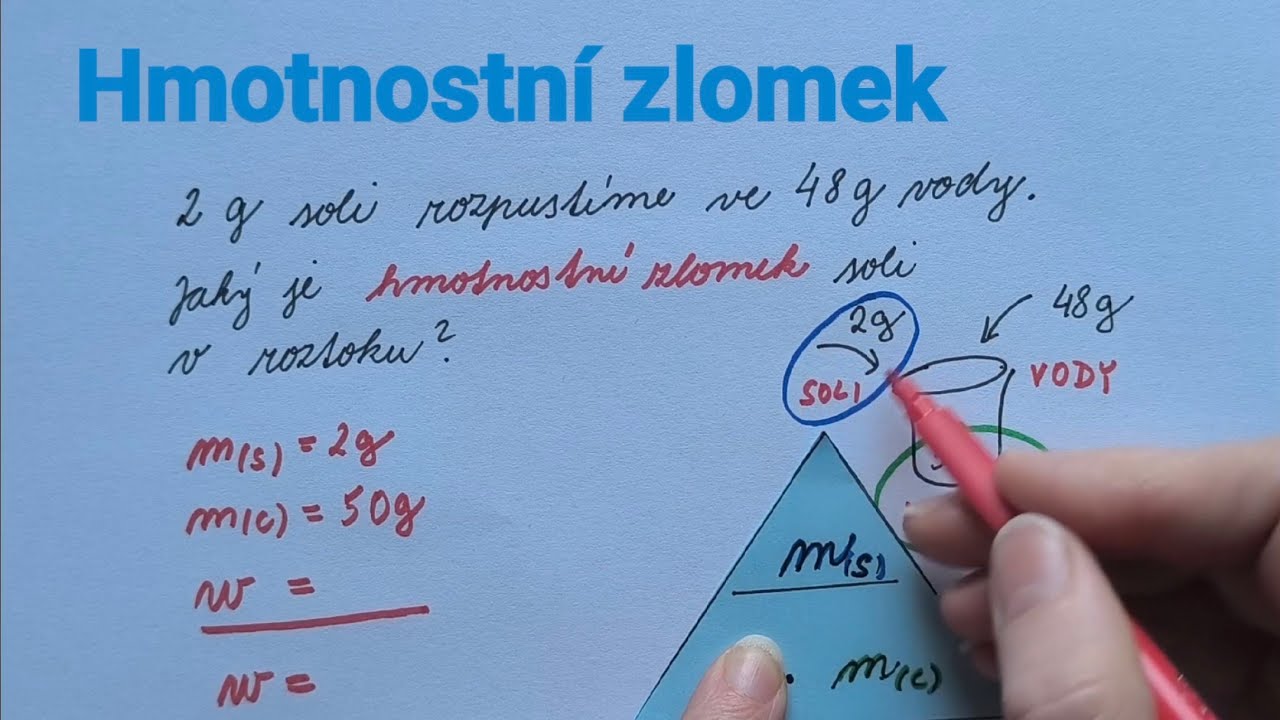 Hmotnostní zlomek
2 g soli rozpustíme ve 48g vody.
Jaký je hmotnostní zlomek soli
v roztoku?
2g
SOLI
48g
VODY
m(s) = 2g
m(c) = 50g
w =
w =
m(s)
. m(c)